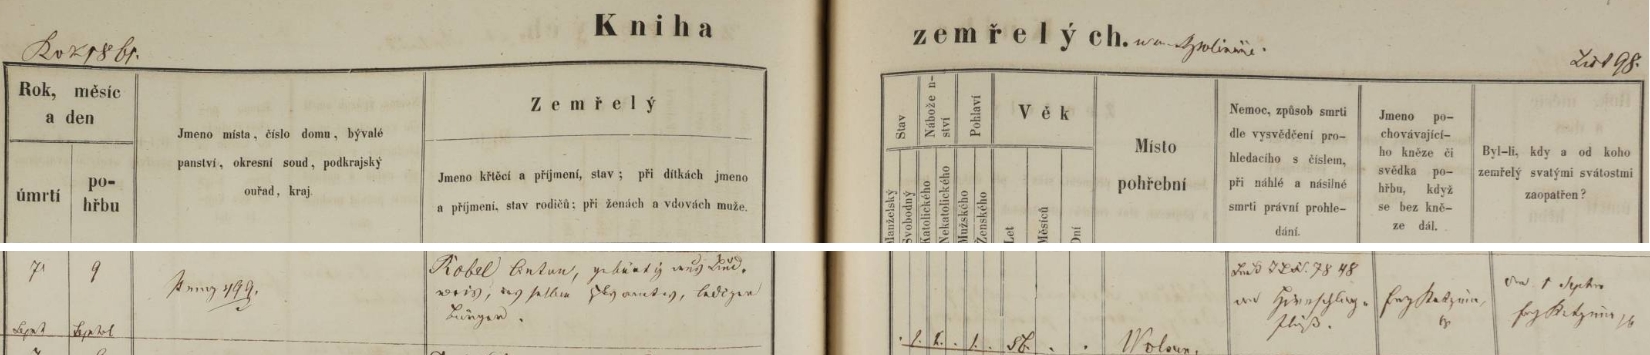 Kniha
zemřelých.
Rok 1861.
List 98.
Rok, měsíc
a den
úmrtí
po-
hřbu
Jmeno místa, číslo domu, bývalé
panství, okresní soud, podkrajský
ouřad, kraj.
Zemřelý
Jmeno křtěcí a příjmení, stav; při dítkách jmeno
a příjmeni, stav rodičů; při ženách a vdovách muže.
Stav
Manželský
Svobodný
Nábožen-
ství
Katolického
Nekatolického
Pohlaví
Mužského
Ženského
Věk
Let
Měsíců
Dní
Místo
pohřební
Nemoc, způsob smrti
dle vysvědčení pro-
hledacího s číslem,
při náhlé a násilné
smrti právní prohle-
dání.
Jmeno po-
chovávající-
ho kněze či
svědka po-
hřbu, když
se bez kně-
ze dál.
Byl-li, kdy a od koho
zemřelý svatými svátostmi
zaopatřen?
7
9
Sept
Prag 499.
Kobel Anton, gebürtig aus
lediger
Bürger.
1. 1. 1. 56.
Wolšan.
7848